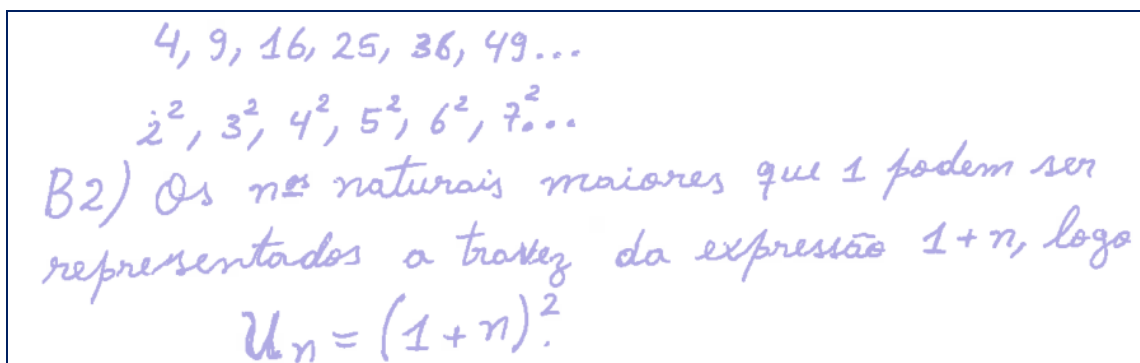 4, 9, 16, 25, 36, 49...
2², 3², 4², 5², 6², 7²...
B2) Os nos naturais maiores que 1 podem ser
representados a travez da expressão 1+n, logo
Un = (1 + n)².